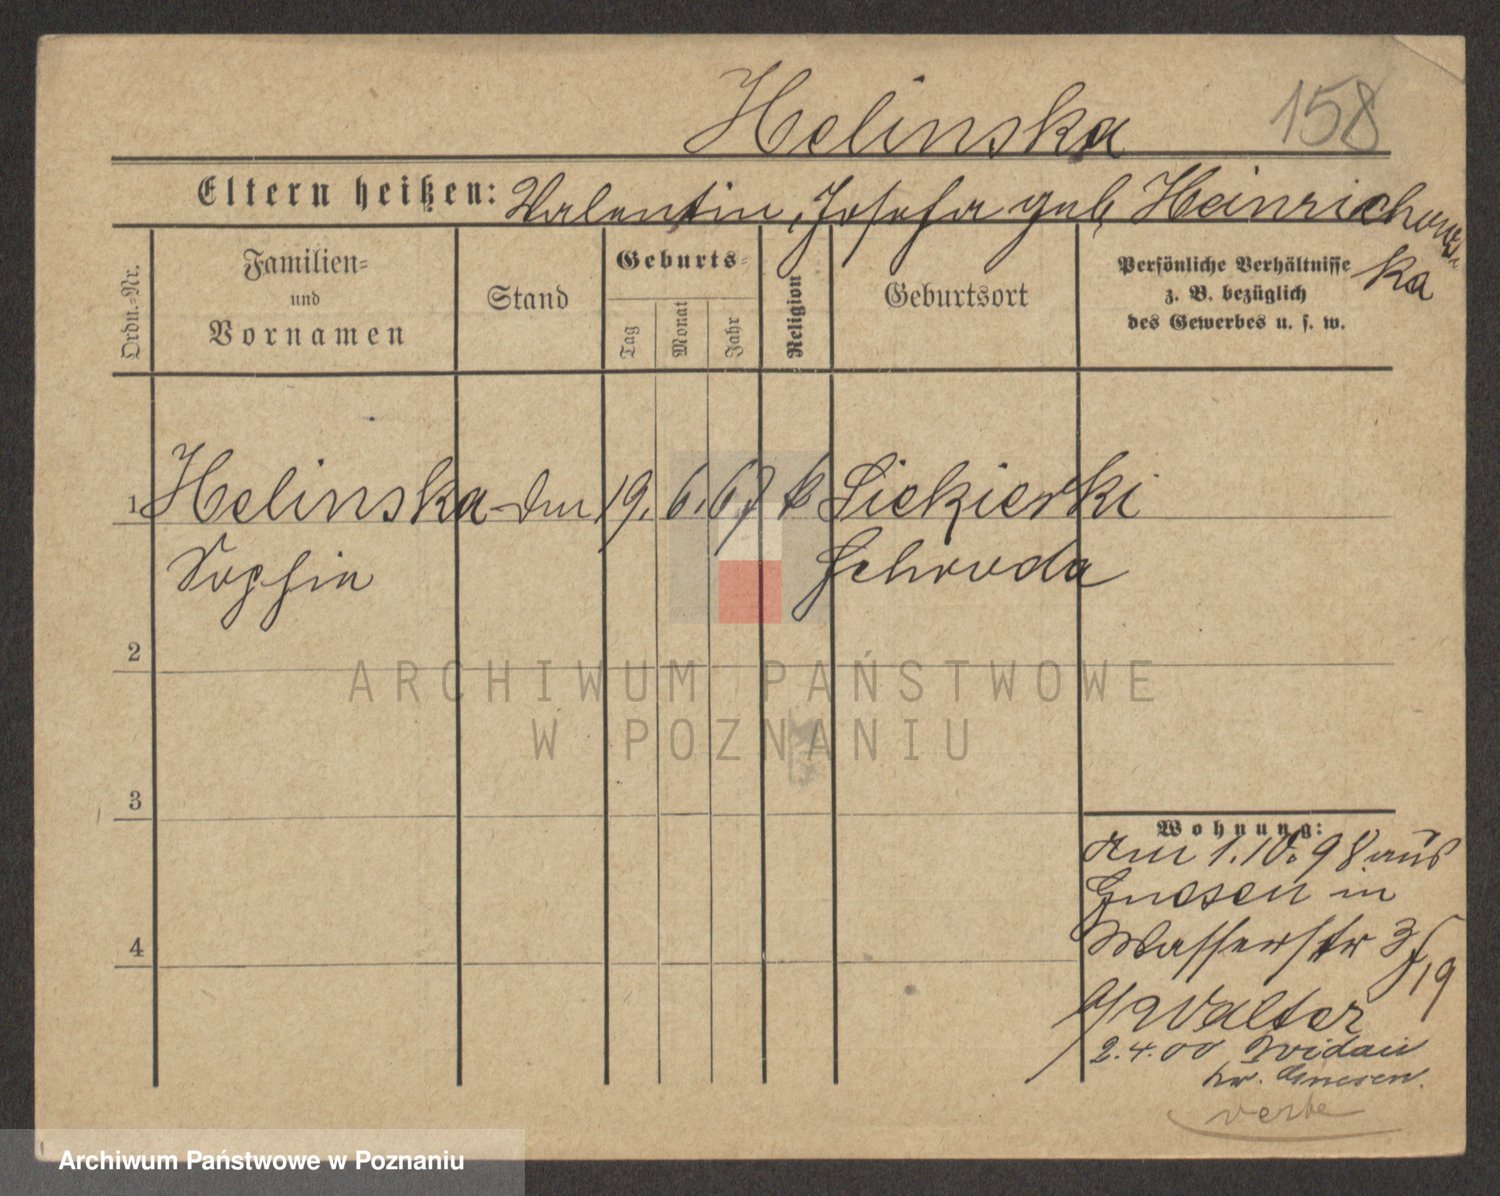 Helinska 158
Eltern heißen: Valentin, Josefa geb Heinrichows-
ka
Ordn.-Nr.
Familien-
und
Vornamen
Stand
Geburts-
Tag
Monat
Jahr
Religion
Geburtsort
Persönliche Verhältnisse
z. B. bezüglich
des Gewerbes u. s. w.
1 Helinska 19. 6. 67 k Siekierki
Sophia Schroda
2
3
4
Wohnung:
Am 1.10.98 aus
Gnesen in
Wasserstr 3/19
b/Walter
2.4.00 Zwidau
kr. Gnesen.
ARCHIWUM PAŃSTWOWE
W POZNANIU
Archiwum Państwowe w Poznaniu